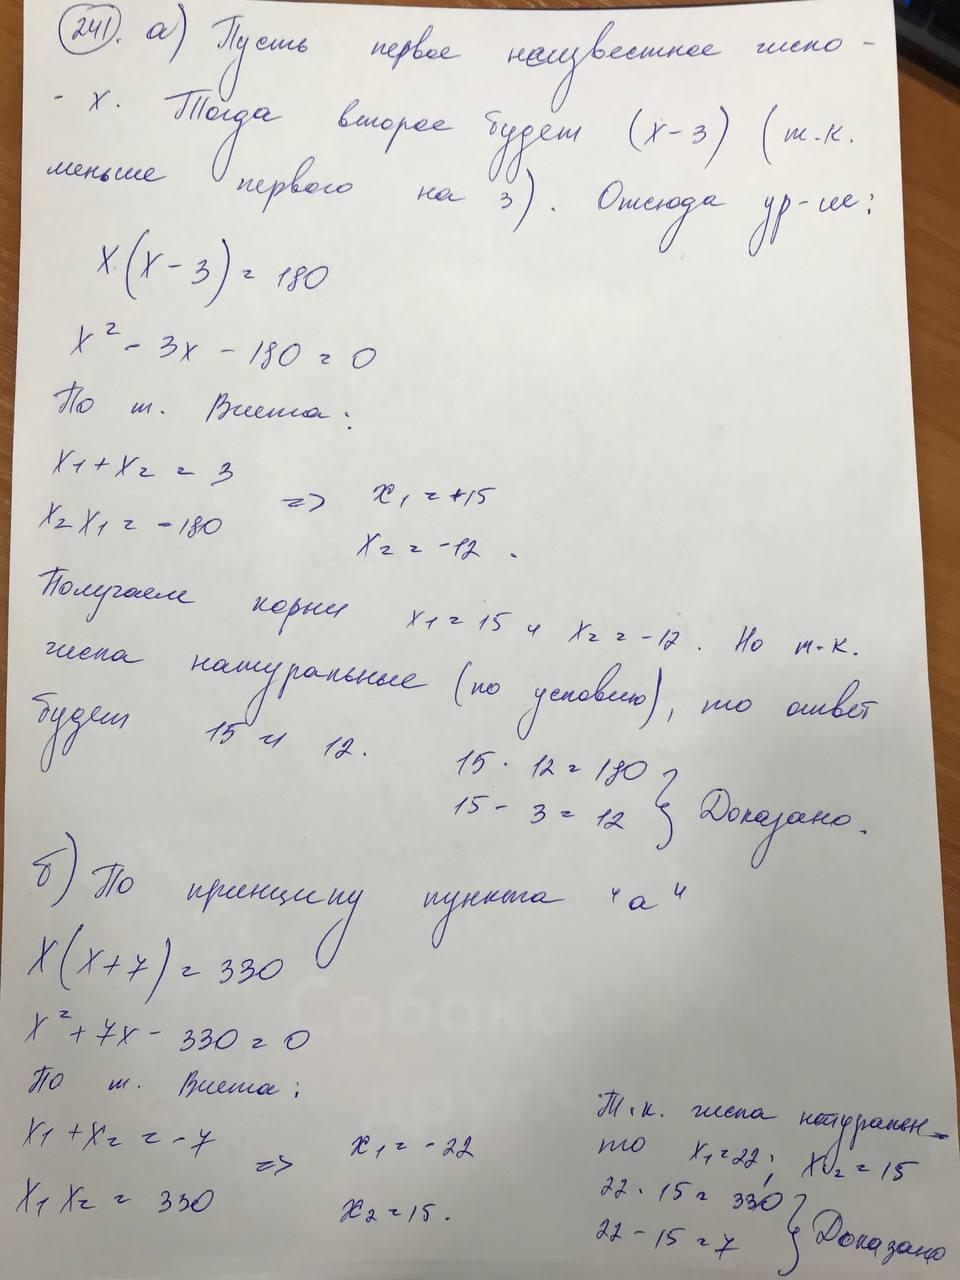 241. а) Пусть первое неизвестное число -
- x. Тогда второе будет (x-3) (т.к.
меньше первого на 3). Отсюда ур-ие:
x(x-3)=180
x²-3x-180=0
По т. Виета:
x₁+x₂=3
x₂x₁=-180
=> x₁=+15
x₂=-12.
Получаем корни x₁=15 и x₂=-12. Но т.к.
числа натуральные (по условию), то ответ
будет 15 и 12.
15·12=180
15-3=12 } Доказано.
б) По принципу пункта "а"
x(x+7)=330
x²+7x-330=0
По т. Виета:
x₁+x₂=-7
x₁x₂=330
=> x₁=-22
x₂=15.
Т.к. числа натурален-
то x₁=22; x₂=15
22·15=330
22-15=7 } Доказано
Собака -
друг